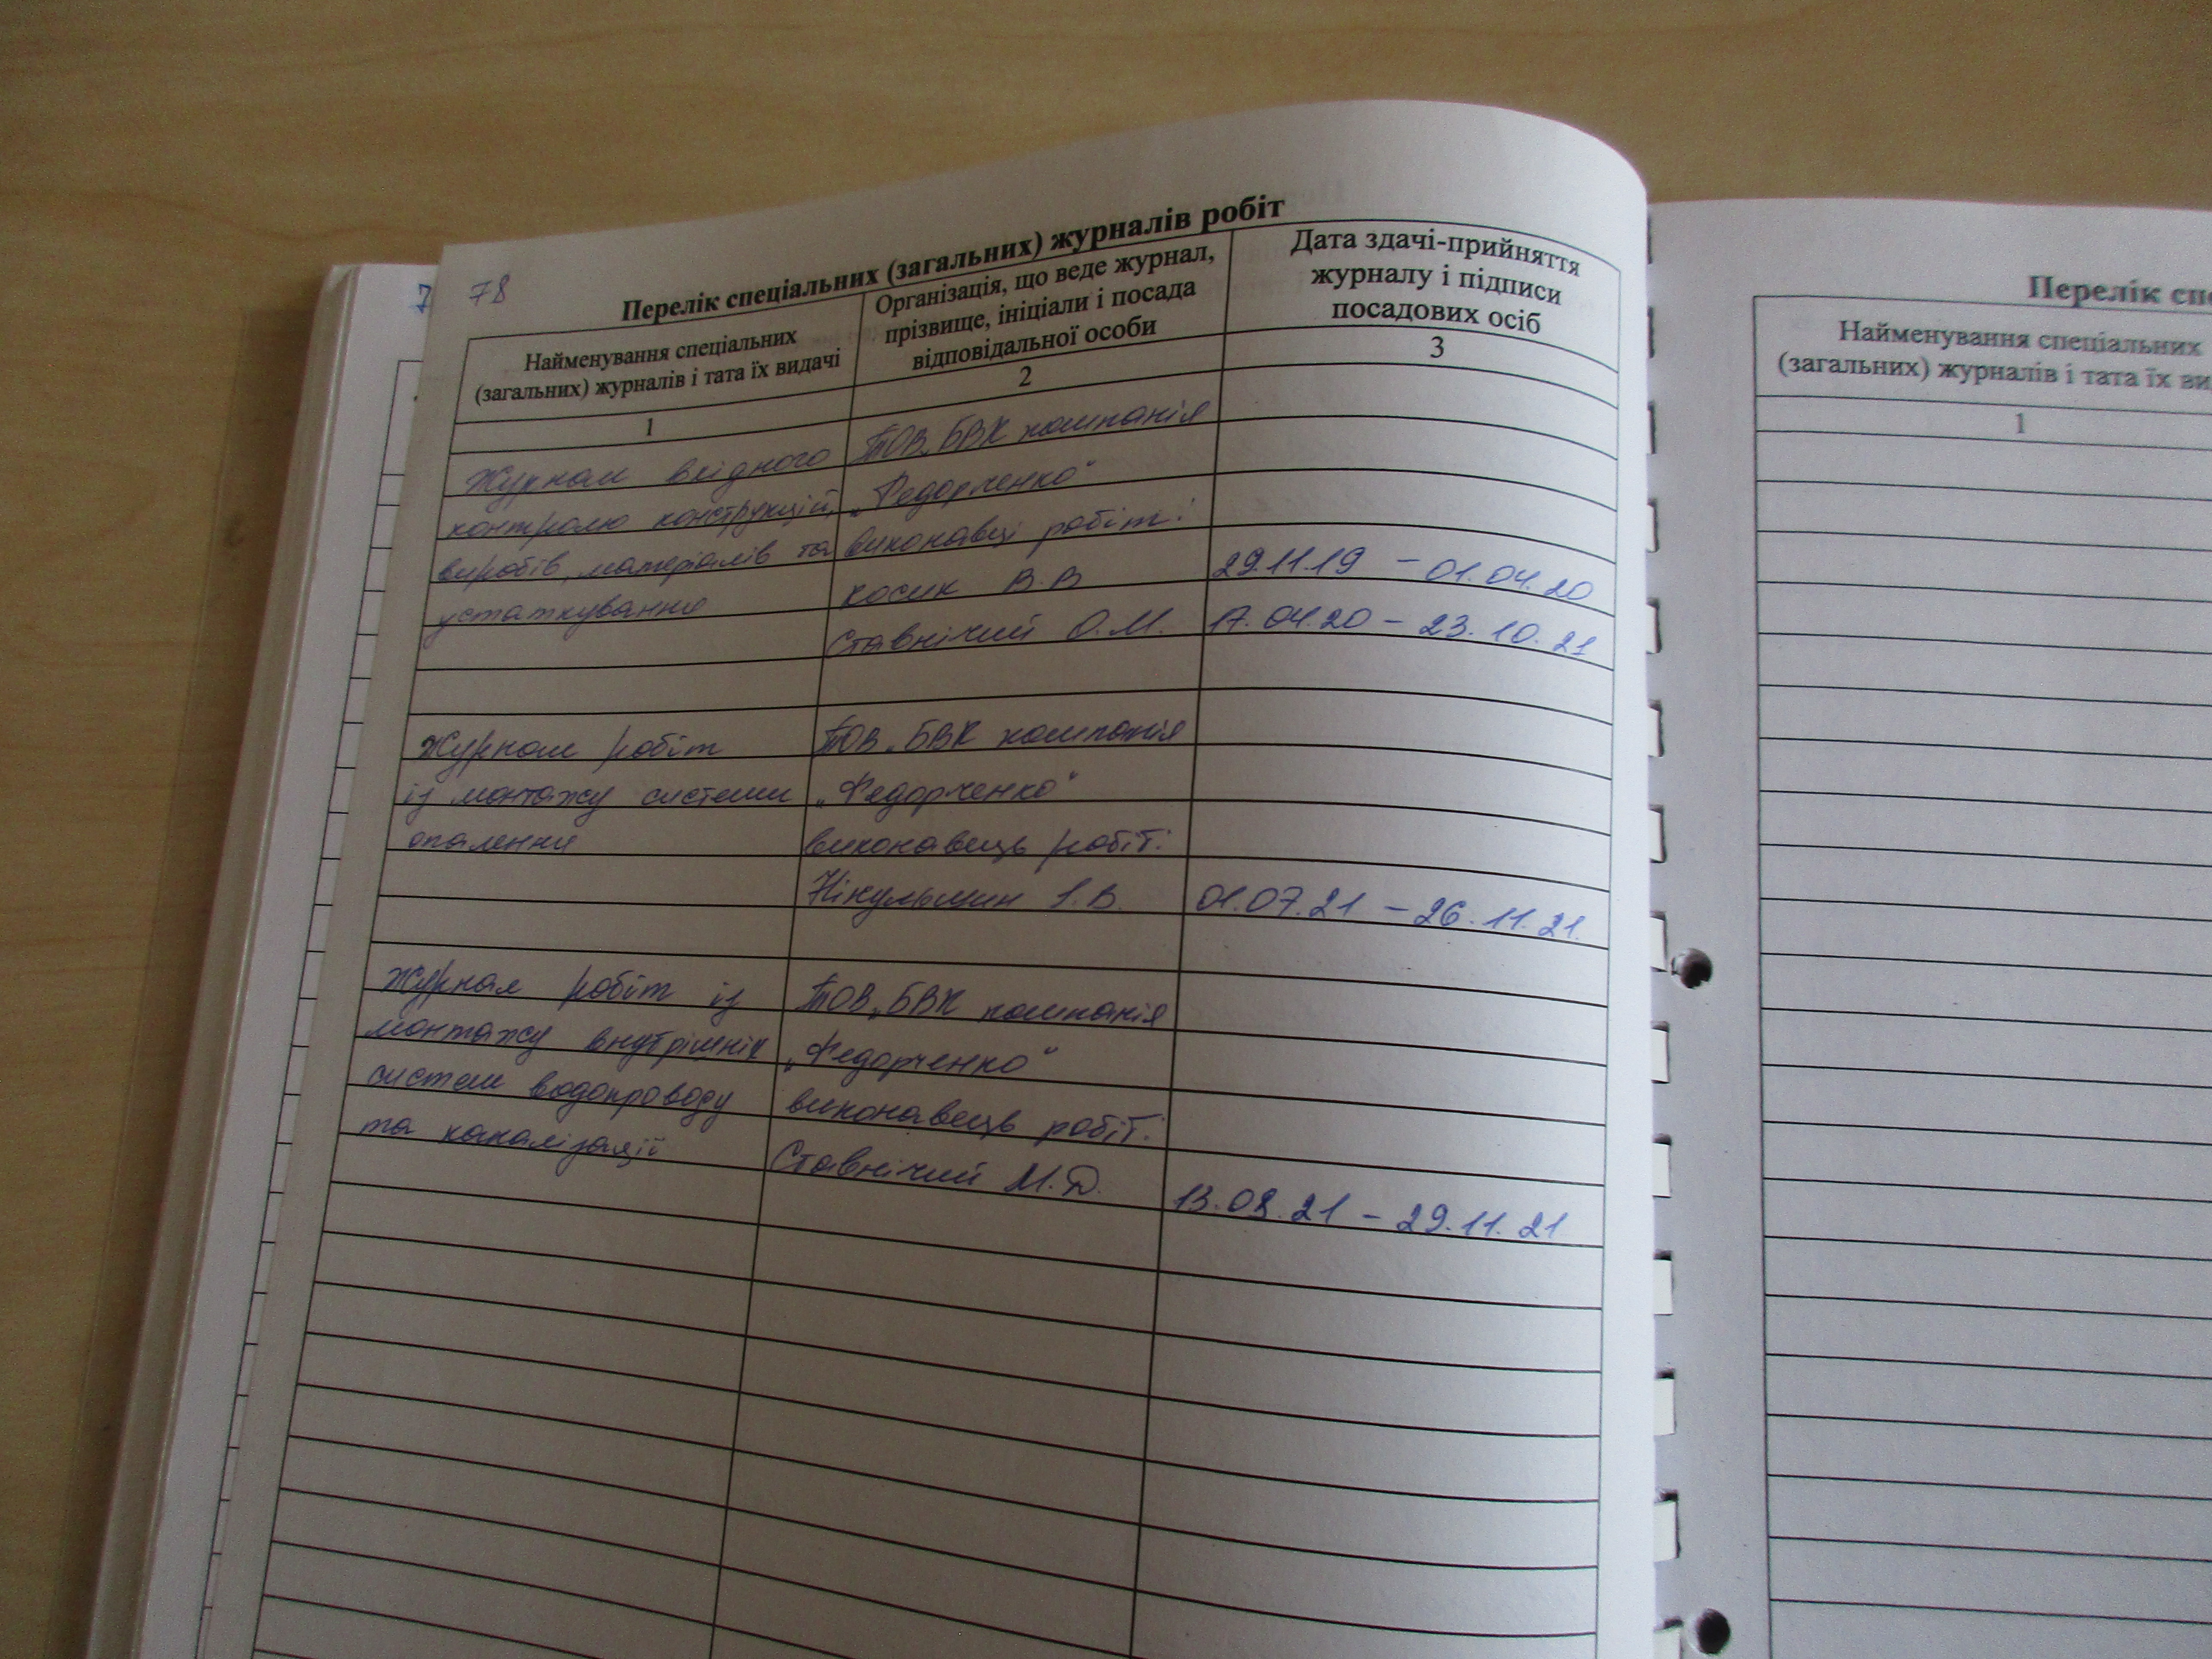 78
Перелік спеціальних (загальних) журналів робіт
Найменування спеціальних
(загальних) журналів і тата їх видачі
Організація, що веде журнал,
прізвище, ініціали і посада
відповідальної особи
Дата здачі-прийняття
журналу і підписи
посадових осіб
1
2
3
Журнал вхідного
контролю конструкцій,
виробів, матеріалів та
устаткування
ТОВ „БВК компанія
„Федорченко"
виконавці робіт:
Косик В.В
29.11.19 – 01.04.20
Ставнічий О.М.
17.04.20 – 23.10.21
Журнал робіт
із монтажу системи
опалення
ТОВ „БВК компанія
„Федорченко"
виконавець робіт:
Нікульшин І.В.
01.07.21 – 26.11.21.
Журнал робіт із
монтажу внутрішніх
систем водопроводу
та каналізації
ТОВ „БВК компанія
„Федорченко"
виконавець робіт:
Ставнічий М.Д.
13.08.21 – 29.11.21
7
Перелік спе
Найменування спеціальних
(загальних) журналів і тата їх ви
1